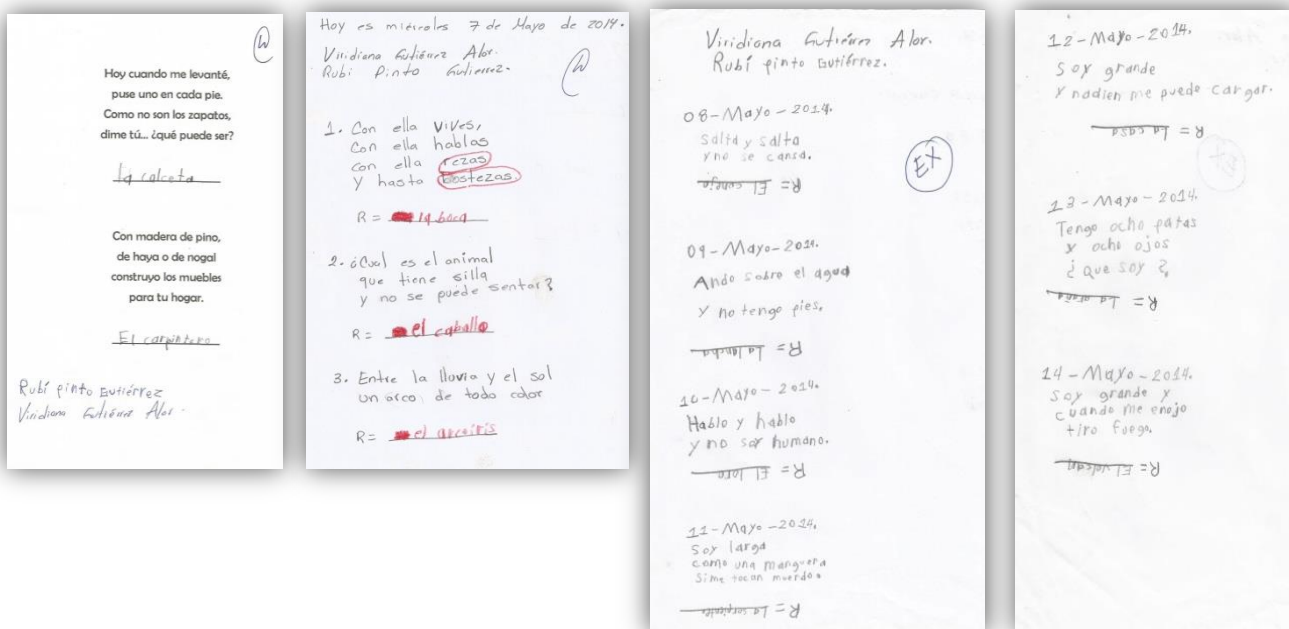 Hoy cuando me levanté,
puse uno en cada pie.
Como no son los zapatos,
dime tú... ¿qué puede ser?
la calceta
Con madera de pino,
de haya o de nogal
construyo los muebles
para tu hogar.
El carpintero
Rubí pinto Gutiérrez
Viridiana Gutiérrez Alor.
Hoy es miércoles 7 de Mayo de 2014.
Viridiana Gutiérrez Alor.
Rubi Pinto Gutierrez.
1. Con ella vives,
Con ella hablas
con ella rezas
Y hasta bostezas.
R = la boca
2. ¿Cual es el animal
que tiene silla
y no se puede sentar?
R = el caballo
3. Entre la lluvia y el sol
un arco de todo color
R = el arcoiris
Viridiana Gutiérrez Alor.
Rubí pinto Gutiérrez.
08-Mayo-2014.
Salta y salta
y no se cansa.
R = El conejo
EX
09-Mayo-2014.
Ando sobre el agua
Y no tengo pies.
R = La lancha
10-Mayo-2014.
Hablo y hablo
y no soy humano.
R = El loro
11-Mayo-2014.
Soy larga
como una manguera
Si me tocan muerdo.
R = La serpiente
12-Mayo-2014.
Soy grande
Y nadien me puede cargar.
R = La casa
13-Mayo-2014.
Tengo ocho patas
y ocho ojos
¿Que soy?
R = La araña
14-Mayo-2014.
Soy grande y
cuando me enojo
tiro fuego.
R = El volcan